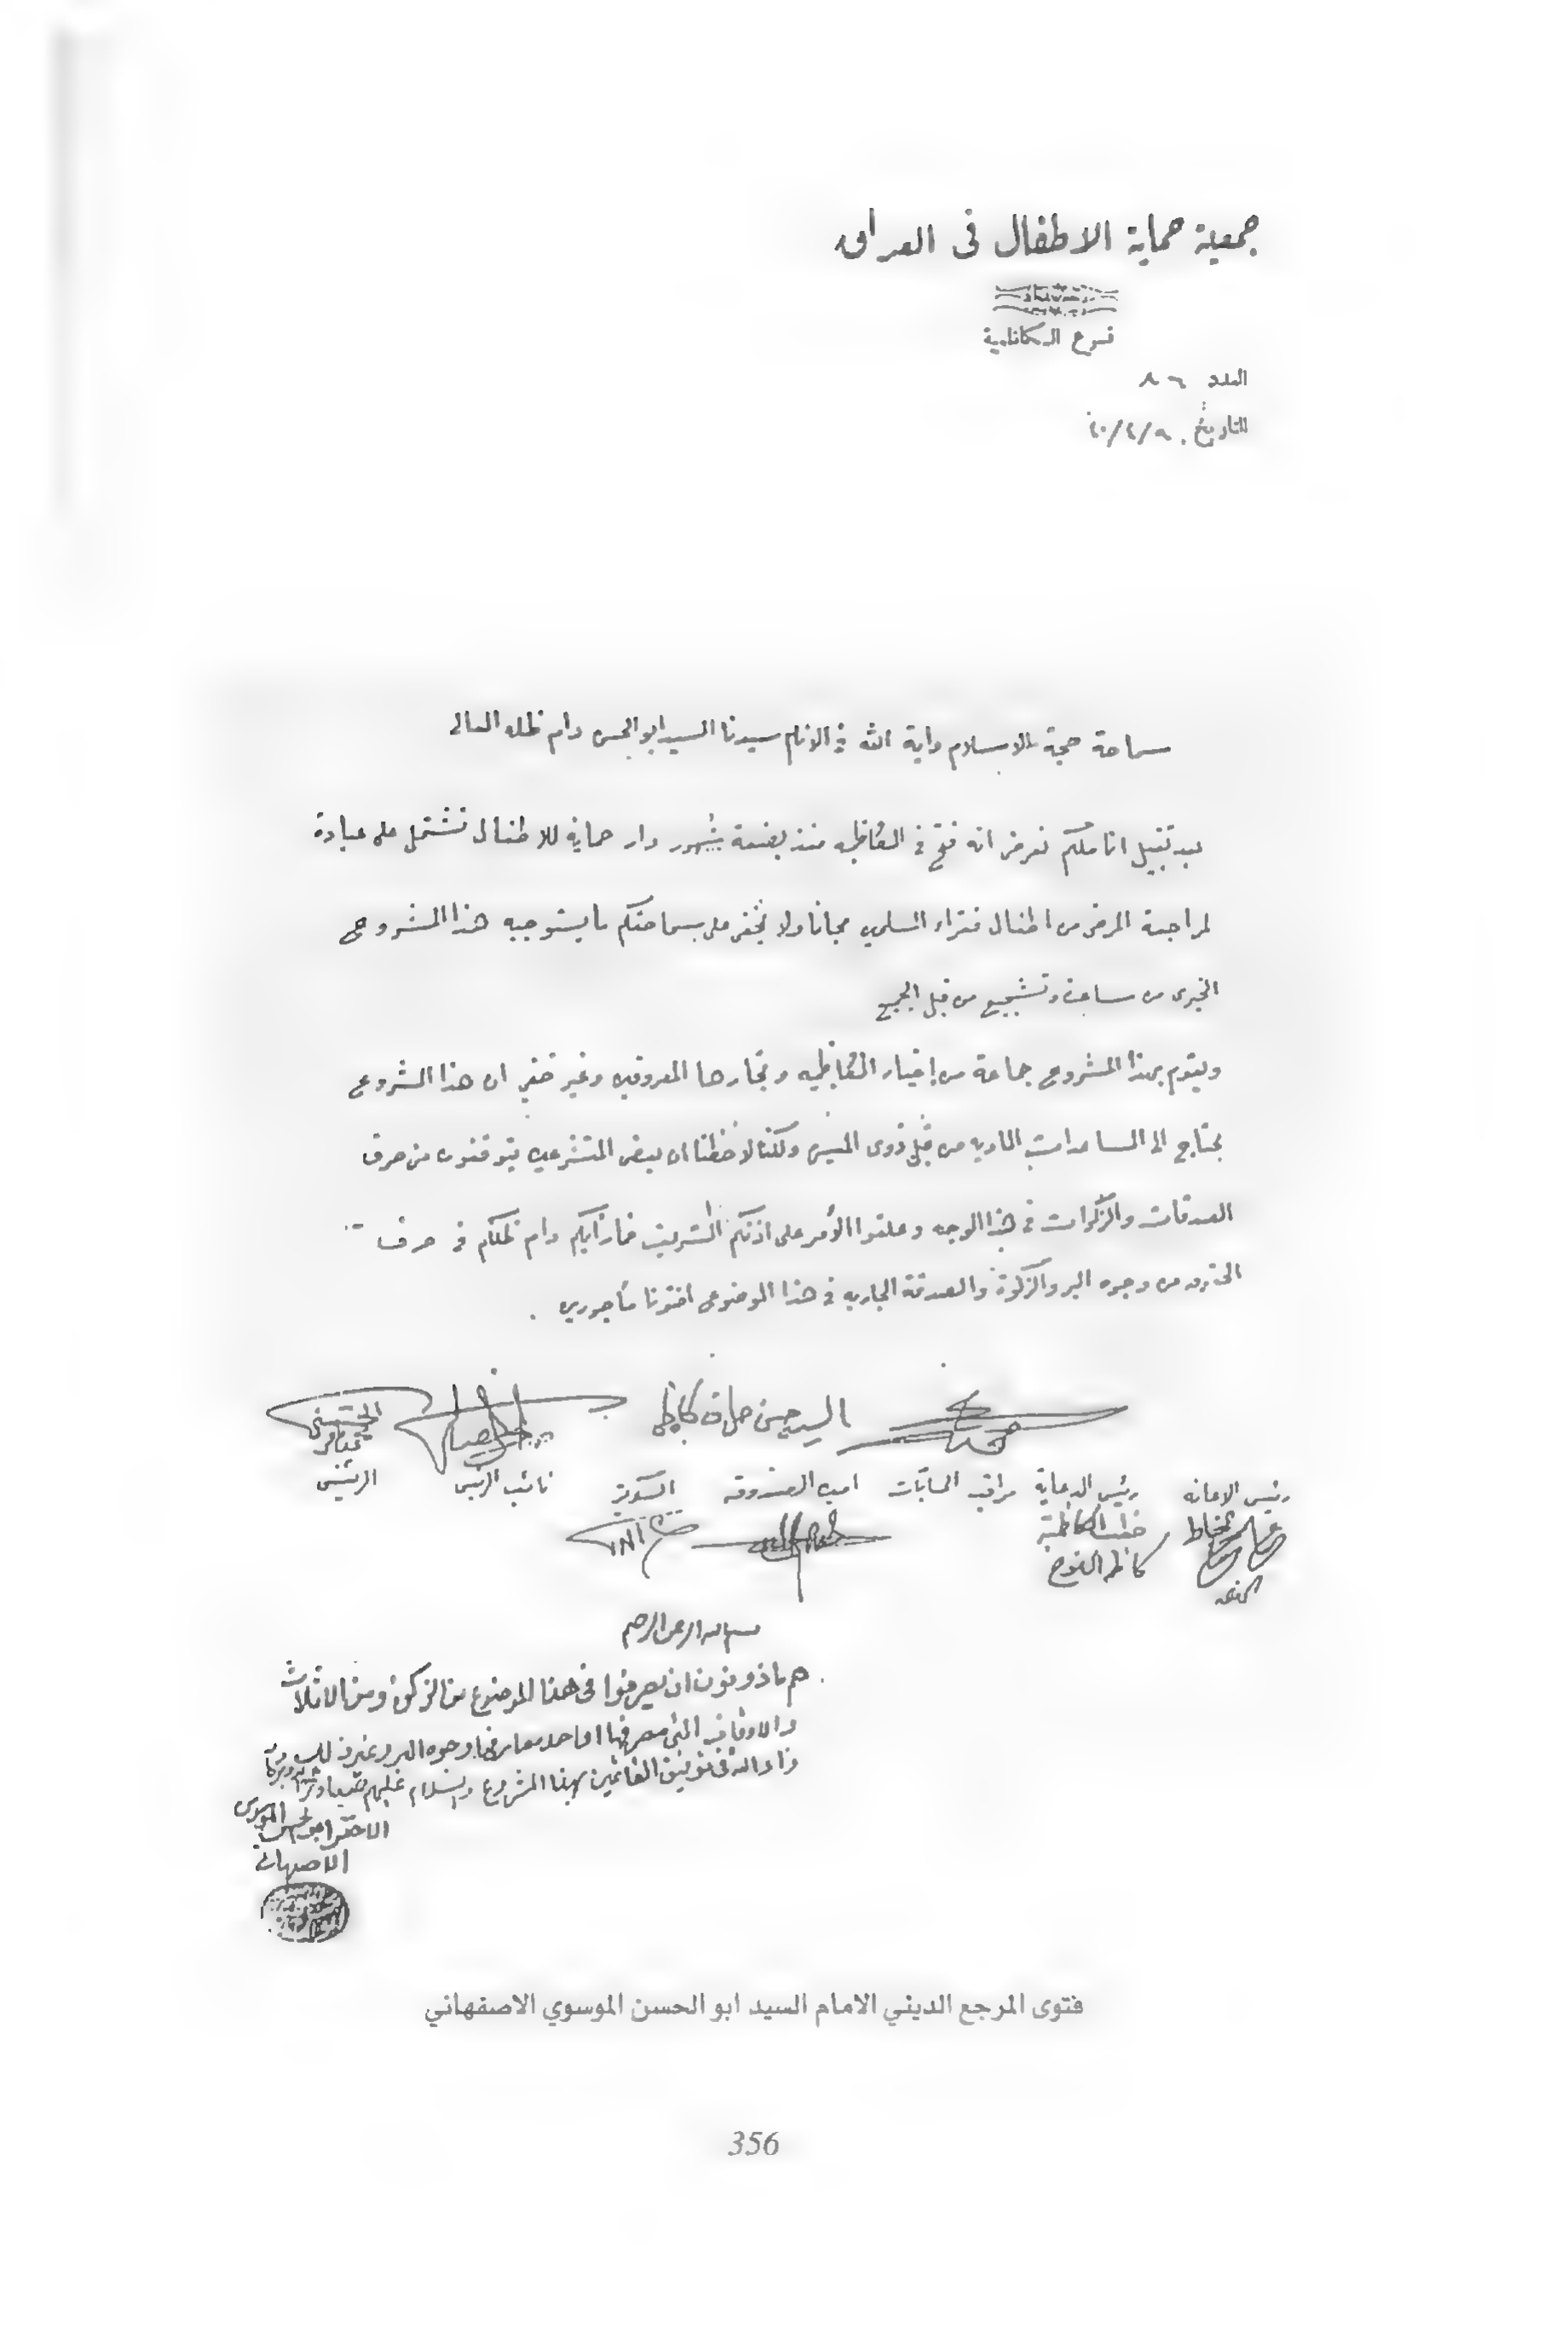 جمعية حماية الاطفال فى العراق
فرع الكاظمية
العدد ٨٦
التاريخ
سماحة حجة الاسلام واية الله في الانام سيدنا السيد ابو الحسن دام ظله العالى
بعد تقبيل اناملكم نعرض انه فتح في الكاظمية منذ بضعة شهور دار حماية للاطفال تشتمل على عيادة
لمراجعة المرضى من اطفال فقراء المسلمين مجانا ولا يخفى على سماحتكم ما يستوجبه هذا المشروع
الخيرى من مساعدة وتشجيع من قبل الجميع
ويقوم بهذا المشروع جماعة من اخيار الكاظمية وتجارها المعروفين وغير خفي ان هذا المشروع
يحتاج الى المساعدات الماديه من قبل ذوى ولكننا لاحظنا ان بعض المتشرعين يتوقفون من صرف
الصدقات والزكوات في هذا الوجه وعلقوا الأمر على اذنكم الشريف فما رأيكم دام ظلكم في صرف
من وجوه البر والزكوة والصدقة الجاريه في هذا الموضوع افتونا مأجورين .
السيد حسن كاظم
رئيس الاعانه رئيس الدعاية مراقب الحسابات امين الصندوق السكرتير نائب الرئيس الرئيس
خطيب الكاظمية
كاظم ال نوح
بسم الله الرحمن الرحيم
هم ماذونون ان يصرفوا في هذا الموضوع من الزكوة ومن الاثلاث
والاوقاف التي مصرفها او احد مصارفها وجوه البر وغير ذلك
زاد الله في توفيق القائمين بهذا المشروع والسلام عليهم جميعا ورحمة الله وبركاته
الاحقر ابو الحسن الموسوى
الاصفهاني
فتوى المرجع الديني الامام السيد ابو الحسن الموسوي الاصفهاني
356